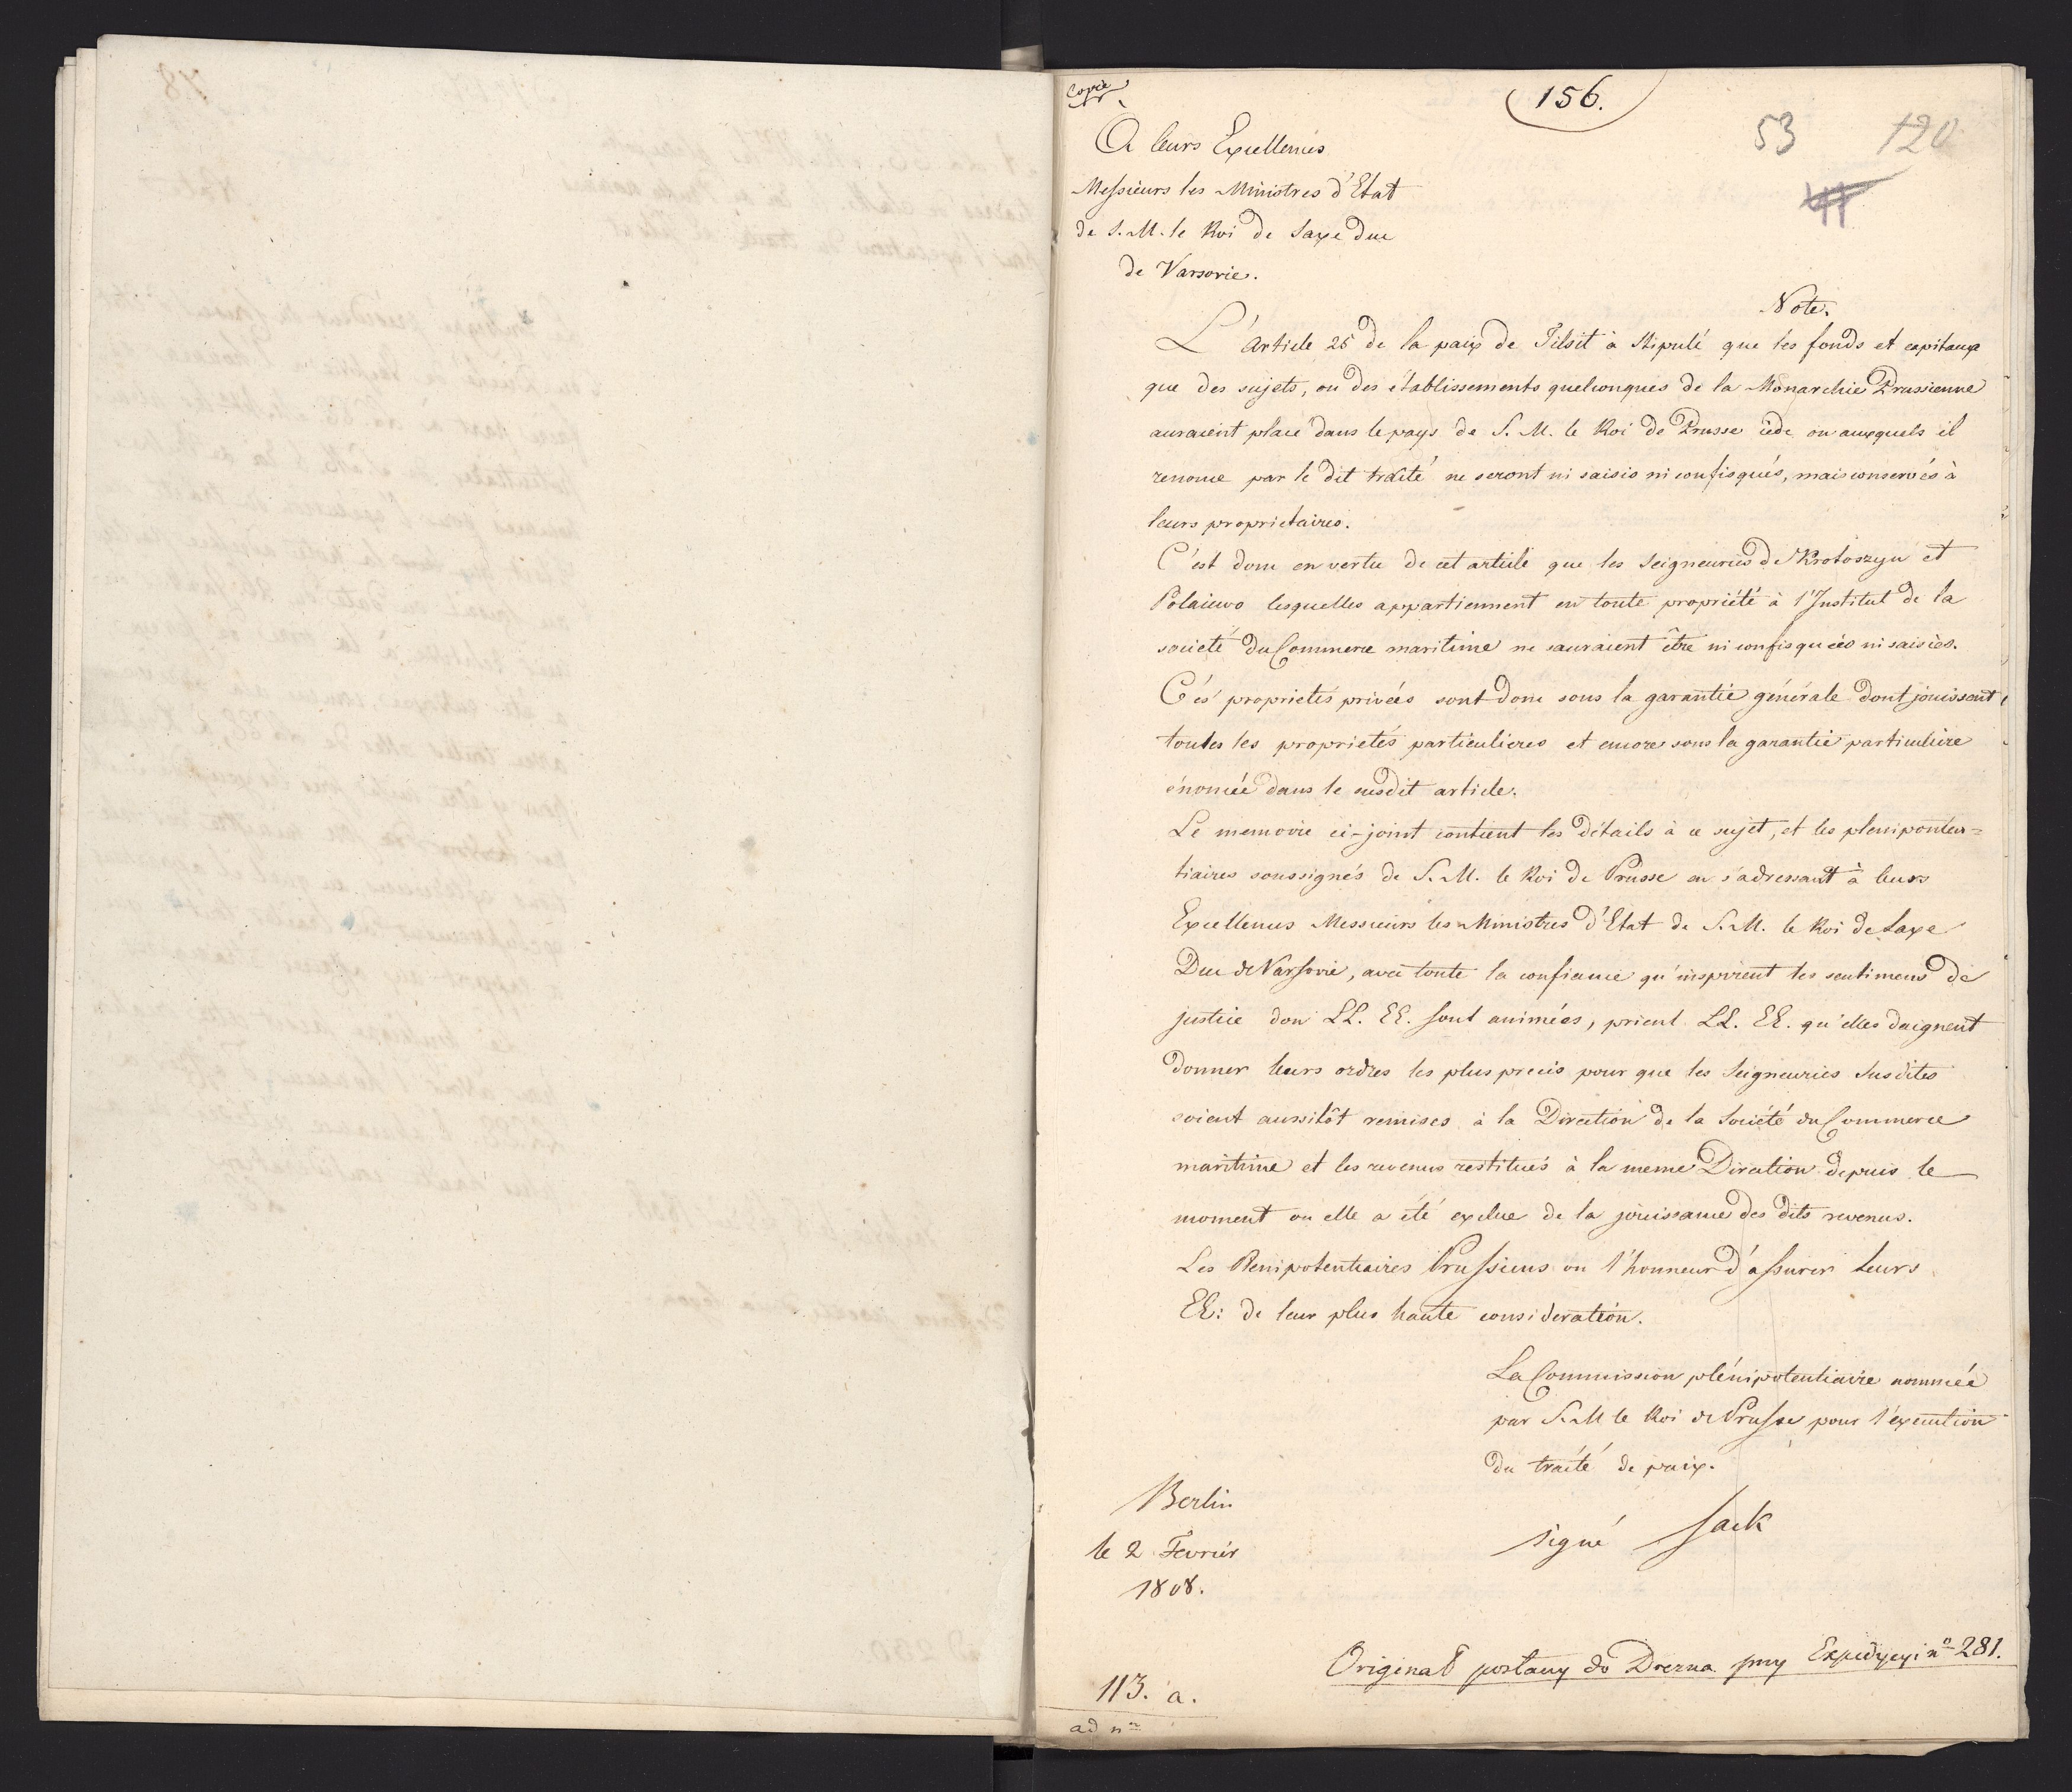 Copie
156.
53 120
A leurs Excellences
Messieurs les Ministres d'Etat
de S. M. le Roi de Saxe Duc
de Varsovie.
Note.
L'article 25 de la paix de Tilsit à stipulé que les fonds et capitaux
que des sujets, ou des établissements quelconques de la Monarchie Prussienne
auraient place dans le pays de S. M. le Roi de Prusse cède ou auxquels il
renonce par le dit traité ne seront ni saisis ni confisqués, mais conservés à
leurs proprietaires.
C'est donc en vertu de cet article que les Seigneuries de Krotoszyn et
Polaiewo lesquelles appartiennent en toute propriété à l'Institut de la
societé du Commerce maritime ne sauraient être ni confisquées ni saisies.
Cés proprietés privées sont donc sous la garantie générale dont jouissent
toutes les proprietés particulieres et encore sous la garantie particulière
énoncée dans le susdit article.
Le memoire ci-joint contient les détails à ce sujet, et les plenipoten=
tiaires soussignés de S. M. le Roi de Prusse en s'adressant à leurs
Excellences Messieurs les Ministres d'Etat de S. M. le Roi de Saxe
Duc de Varsovie, avec toute la confiance qu'inspirent les sentimens de
justice don LL. EE. sont animées, prient LL. EE. qu'elles daignent
donner leurs ordres les plus precis pour que les Seigneuries susdites
soient aussitôt remises à la Direction de la Société du Commerce
maritime et les revenus restitués à la meme Direction depuis le
moment ou elle a été exclue de la jouissance des dits revenus.
Les Plenipotentiaires Prussiens on l'honneur d'assurer Leurs
EE: de leur plus haute consideration.
La Commission plénipotentiaire nommée
par S. M le Roi de Prusse pour l'execution
du traité de paix.
Berlin
le 2 Fevrier
1808.
signé Sack
Original posłany do Drezna przy Expedycyi no 281.
113. a.
ad no